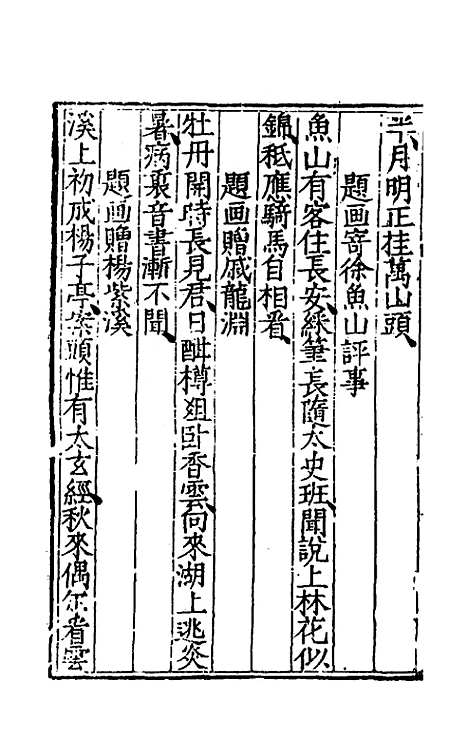 半月明正挂萬山頭
題画寄徐魚山評事
魚山有客住長安綵筆長隨太史班聞說上林花似
錦秪應騎馬自相看
題画贈戚龍淵
牡丹開時長見君日酣樽俎卧香雲向來湖上逃炎
暑病裏音書漸不聞
題画贈楊紫溪
溪上初成楊子亭案頭惟有太玄經秋來偶尔看雲